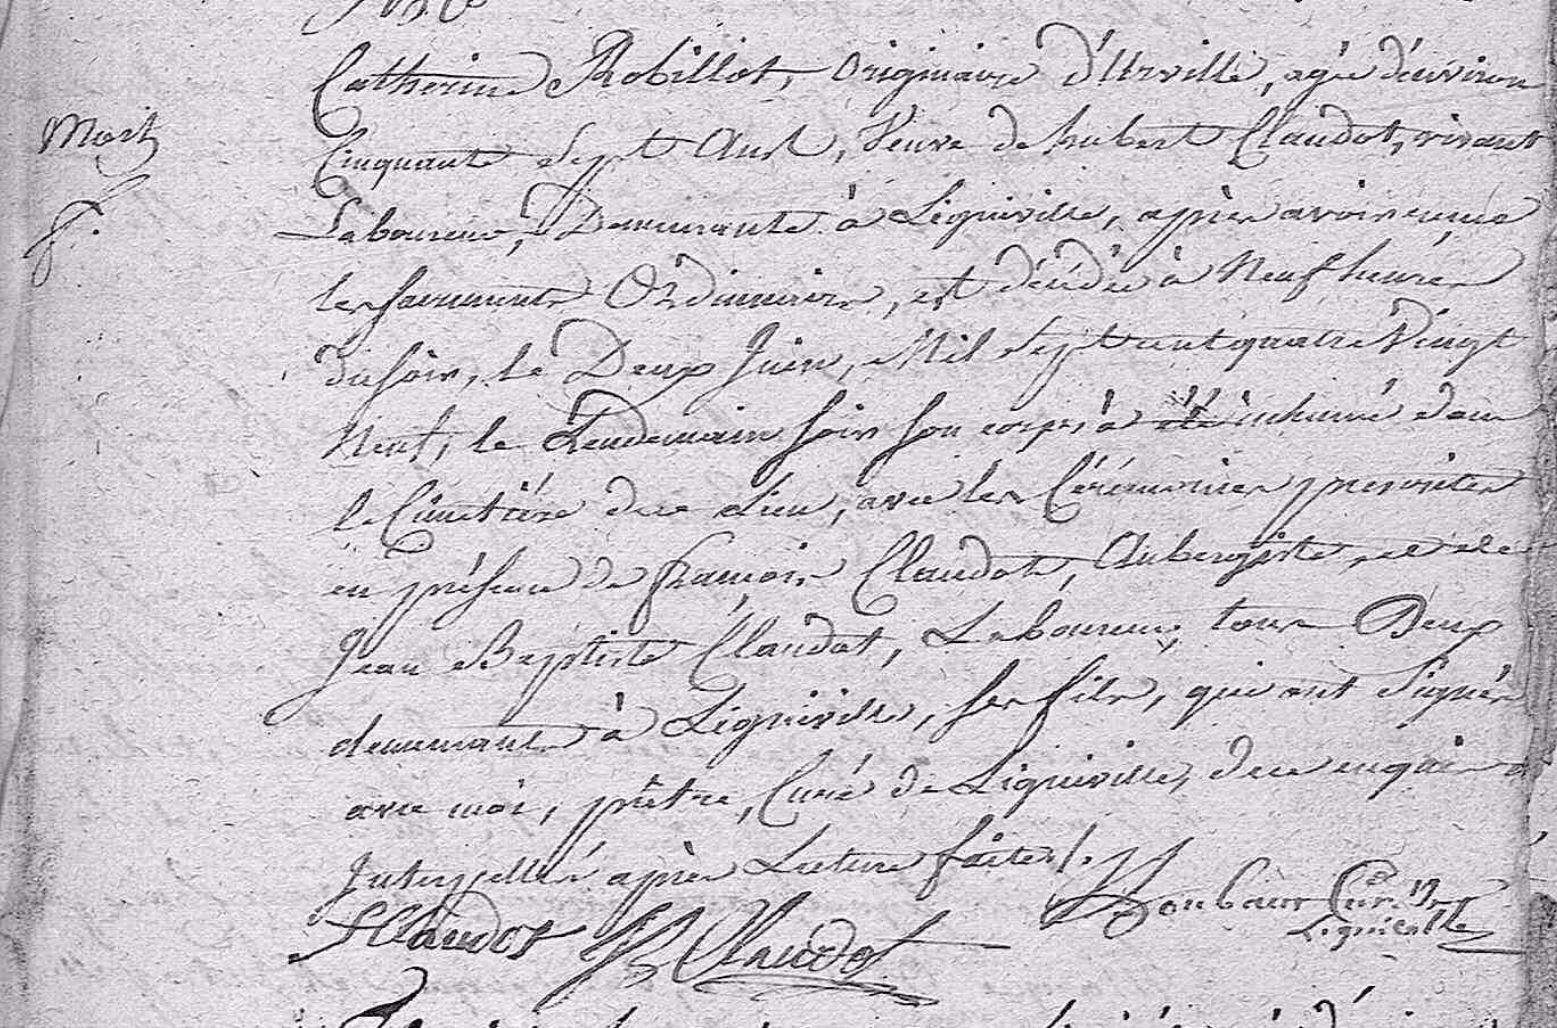 Catherine Robillot, Originaire d'Urville, agée d'environ
Mort
Cinquante Sept Ans, Veuve de hubert Claudot, vivant
Laboureur, Demeurante à Ligniville, après avoir reçue
f.
les Sacrements Ordinaires, est décédée à Neuf heures
du Soir, le Deux Juin, Mil Sept cent quatre Vingt
Neuf, le Lendemain Soir Son corps à été inhumé dans
le Cimetière de ce Lieu, avec les Cérémonies prescrites
en présence de François Claudot, Aubergiste, et de
Jean Baptiste Claudot, Laboureur, tous Deux
demeurants à Ligniville, Ses fils, qui ont Signés
avec moi, prêtre, Curé de Ligniville, de ce enquis
Interpellés après Lecture faite /.
f Claudot JB Claudot Curé de
Ligniville